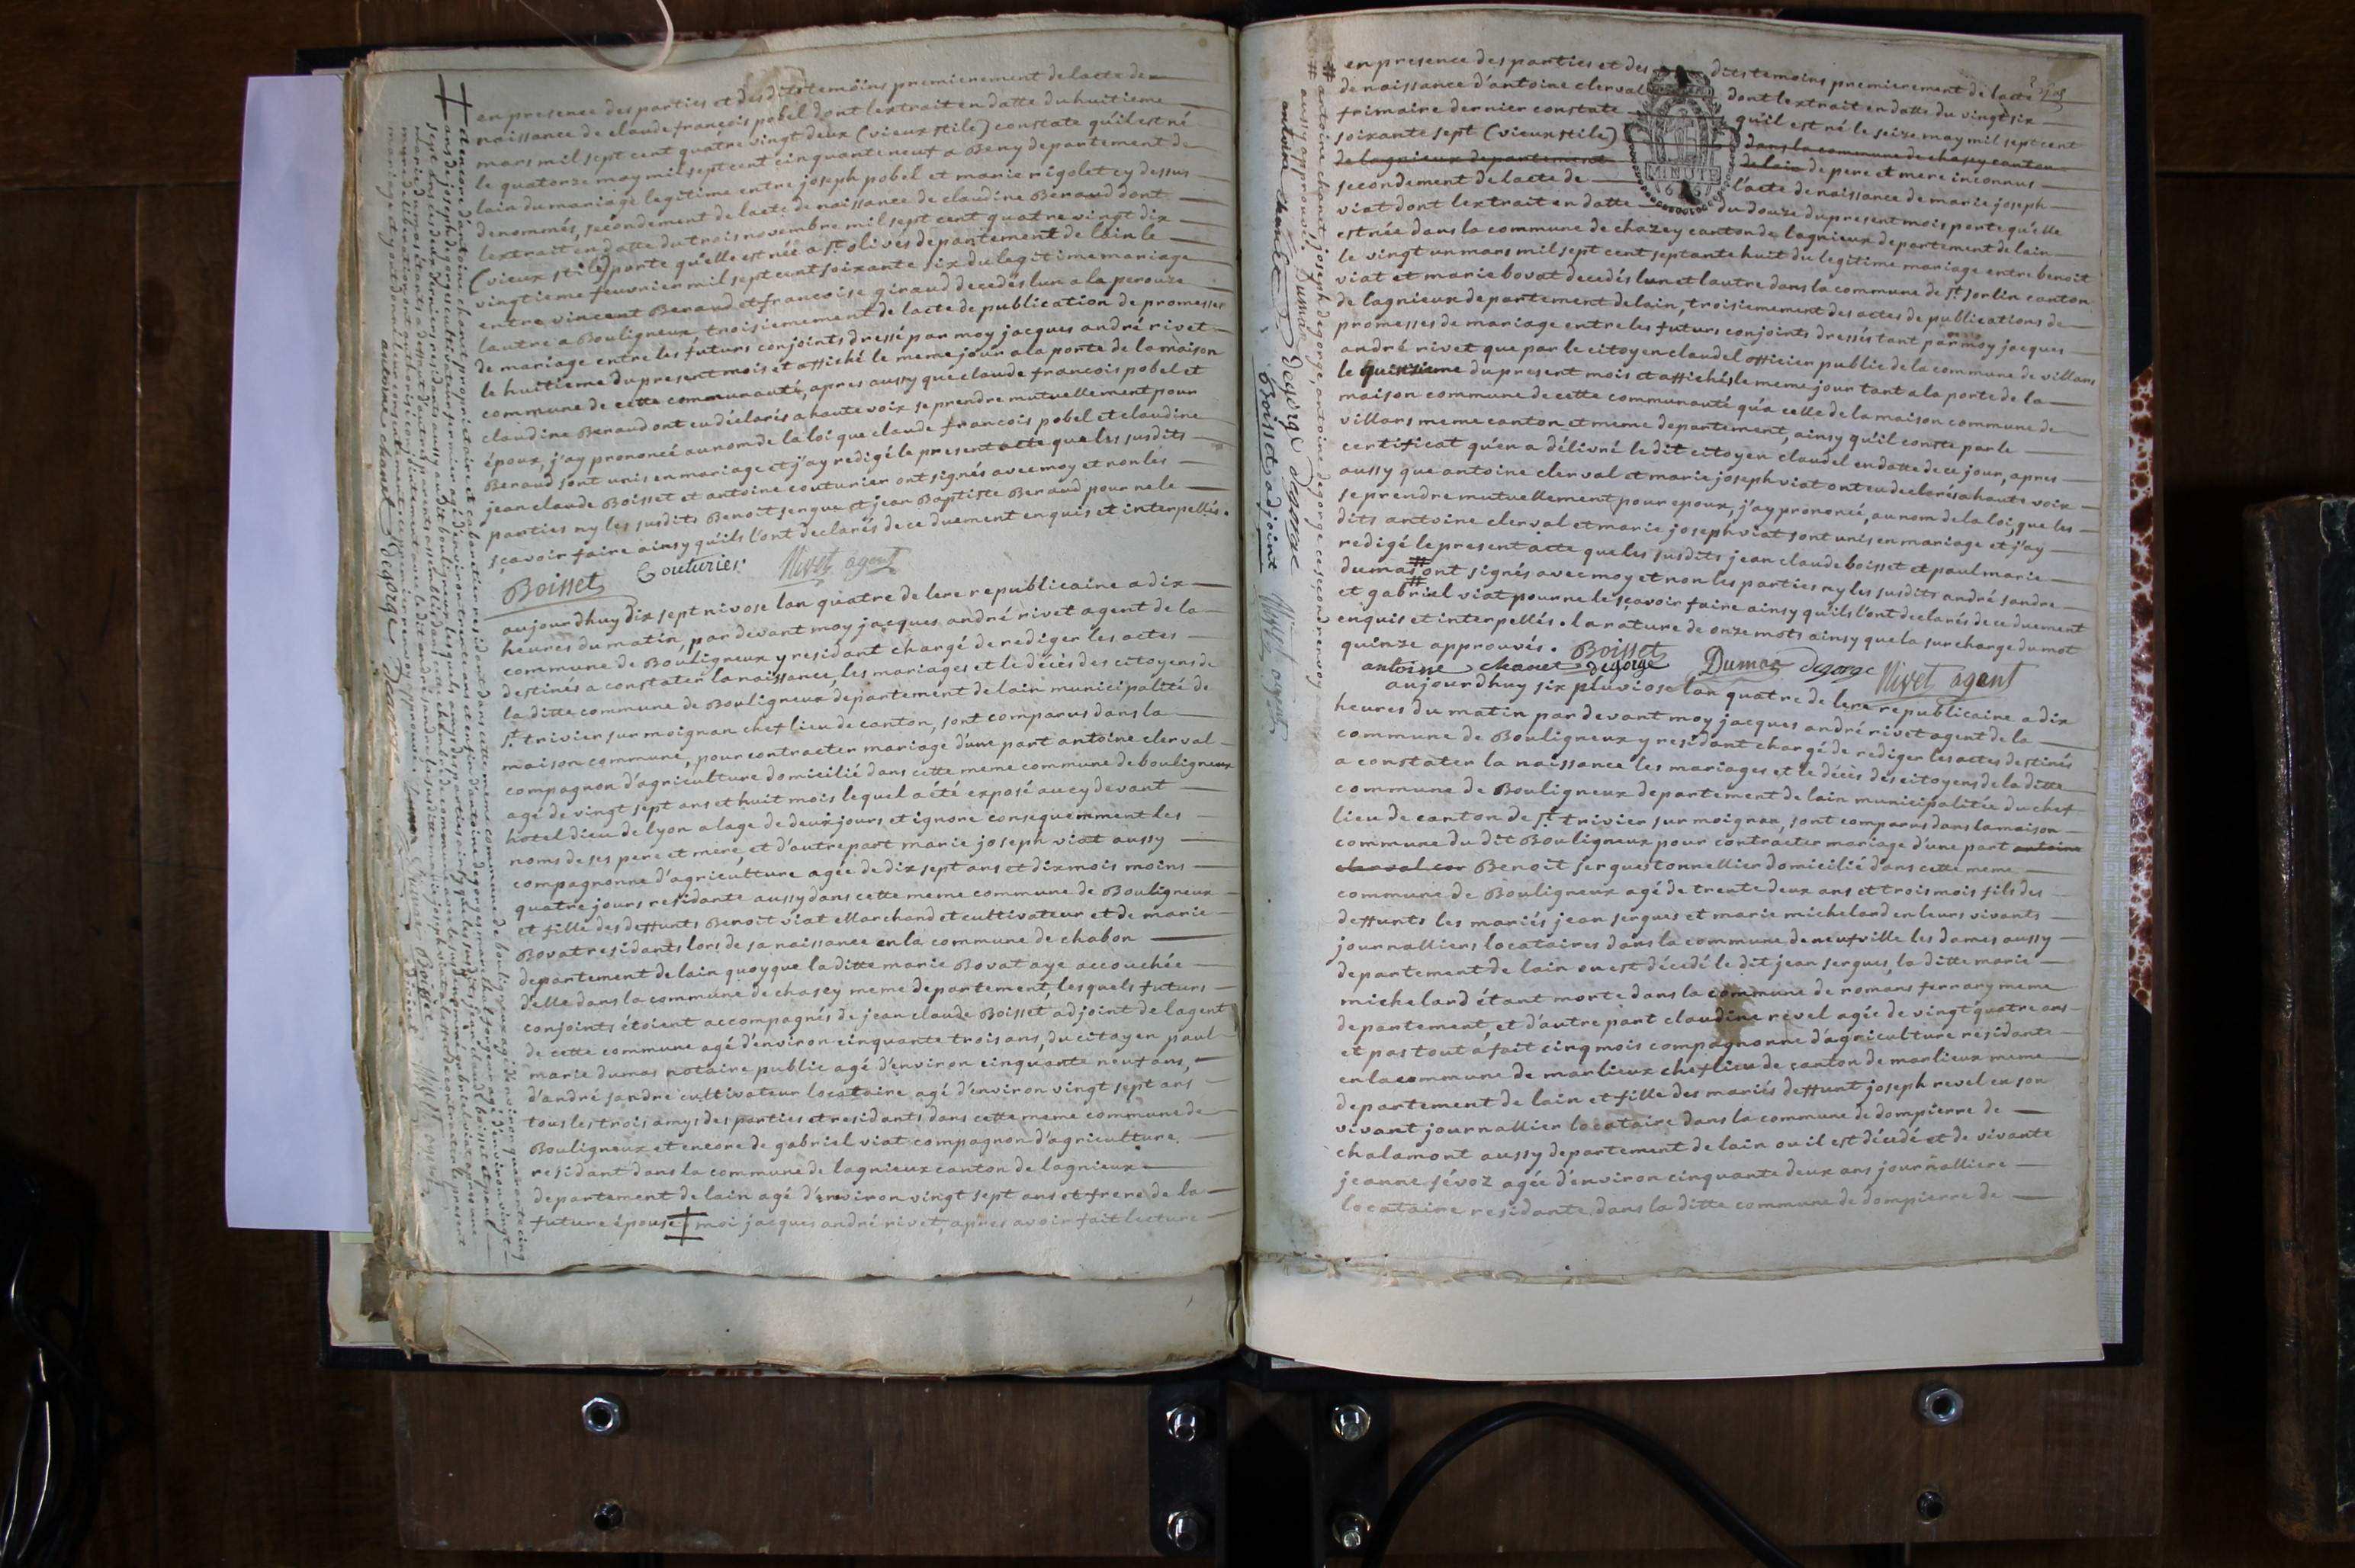 en presence des parties et des dits temoins premierement de lacte de
naissance de claude françois pobel dont lextrait en datte du huitieme
mars mil sept cent quatre vingt deux (vieux stile) constate qu'il est né
le quatorze may mil sept cent cinquante neuf a Beny departement de
lain du mariage legitime entre joseph pobel et marie rigolet cy dessus
denommés, secondement de lacte de naissance de claudine Beraud dont
lextrait en datte du trois novembre mil sept cent quatre vingt dix
(vieux stile) porte qu'elle est née a st olives departement de lain le
vingtieme feuvrier mil sept cent soixante six du legitime mariage
entre vincent Beraud et francoise giraud decedés lun a la perouze
lautre a Bouligneux, troisiemement de lacte de publication de promesses
de mariage entre les futurs conjoints dressé par moy jacques andré rivet
le huitieme du present mois et affiché le meme jour a la porte de la maison
commune de cette communauté, apres aussy que claude francois pobel et
claudine Beraud ont eu déclarés a haute voix se prendre mutuellement pour
époux, j'ay prononcé au nom de la loi que claude francois pobel et claudine
Beraud sont unis en mariage et j'ay redigé le present acte que les susdits
jean claude Boisset et antoine couturier ont signés avec moy et non les
parties ny les susdits Benoit sergue et jean Baptiste Beraud pour ne le
sçavoir faire ainsy qu'ils l'ont declarés de ce duement enquis et interpellés.
Boisset Couturier Rivet agent
aujourdhuy dix sept nivose lan quatre de lere republicaine a dix
heures du matin, par devant moy jacques andré rivet agent de la
commune de Bouligneux y residant chargé de rediger les actes
destinés a constater la naissance, les mariages et le décès des citoyens de
la ditte commune de Bouligneux departement de lain municipalité de
st trivier sur moignan chef lieu de canton, sont comparus dans la
maison commune, pour contracter mariage d'une part antoine clerval
compagnon d'agriculture domicilié dans cette meme commune de bouligneux
agé de vingt sept ans et huit mois lequel a été exposé au cy devant
hotel dieu de lyon a lage de deux jours et ignore consequemment les
noms de ses pere et mere, et d'autre part marie joseph viat aussy
compagnonne d'agriculture agée de dix sept ans et dix mois moins
quatre jours residante aussy dans cette meme commune de Bouligneux
et fille des deffunts Benoit viat Marchand et cultivateur et de marie
Bovat residants lors de sa naissance en la commune de chabon
departement de lain quoyque la ditte marie Bovat aye accouchée
d'elle dans la commune de chasey meme departement, lesquels futurs
conjoints étoient accompagnés de jean claude Boisset adjoint de lagent
de cette commune agé d'environ cinquante trois ans, du citoyen paul
marie dumas notaire public agé d'environ cinquante neuf ans,
d'andré sandre cultivateur locataire agé d'environ vingt sept ans
tous les trois amys des parties et residants dans cette meme commune de
Bouligneux et encore de gabriel viat compagnon d'agriculture
residant dans la commune de lagnieux canton de lagnieux
departement de lain agé d'environ vingt sept ans et frere de la
future épouse ‡ moi jacques andré rivet, apres avoir fait lecture
‡ et encore d'antoine chanet proprietaire et cabaretier residant dans cette meme commune de bouligneux agé d'environ quarante cinq
ans, de joseph degorge cultivateur fermier agé d'environ trente ans et enfin d'antoine degorge marechal forgeur agé d'environ vingt
antoine chanet degorge Degorge Dumas Boisset adjoint Rivet agent
en presence des parties et des dits temoins premierement de lacte
de naissance d'antoine clerval dont lextrait en datte du vingt six
frimaire dernier constate qu'il est né le seize may mil sept cent
soixante sept (vieux stile) dans la commune de chasey canton
de lagnieux departement de lain de pere et mere inconnus
secondement de lacte de l'acte de naissance de marie joseph
viat dont lextrait en datte du douze du present mois porte qu'elle
est née dans la commune de chazey canton de lagnieux departement de lain
le vingt un mars mil sept cent septante huit du legitime mariage entre benoit
viat et marie bovat decedés lun et lautre dans la commune de st sorlin canton
de lagnieux departement de lain, troisiemement des actes de publications de
promesses de mariage entre les futurs conjoints dressés tant par moy jacques
andré rivet que par le citoyen claudel officier public de la commune de villars
le quinzieme du present mois et affichés le meme jour tant a la porte de la
maison commune de cette communauté qu'a celle de la maison commune de
villars meme canton et meme departement, ainsy qu'il conste par le
certificat qu'en a délivré le dit citoyen claudel en datte de ce jour, apres
aussy que antoine clerval et marie joseph viat ont eu declarés a haute voix
se prendre mutuellement pour epoux, j'ay prononcé, au nom de la loi, que les
dits antoine clerval et marie joseph viat sont unis en mariage et j'ay
redigé le present acte que les susdits jean claude boisset et paul marie
dumas # ont signés avec moy et non les parties ny les susdits andré sandre
et gabriel viat pour ne le sçavoir faire ainsy qu'ils l'ont declarés de ce duement
enquis et interpellés. la rature de onze mots ainsy que la surcharge du mot
quinze approuvés. Boisset
antoine chanet degorge Dumas degorge Rivet agent
# antoine chanet, joseph degorge, antoine degorge ce second renvoy
# aussy approuvé. Dumas
antoine chanet Degorge degorge
Boisset adjoint Rivet agent
MINUTE
aujourdhuy six pluviose lan quatre de lere republicaine a dix
heures du matin par devant moy jacques andré rivet agent de la
commune de Bouligneux y residant chargé de rediger les actes destinés
a constater la naissance les mariages et le décès des citoyens de la ditte
commune de Bouligneux departement de lain municipalitée du chef
lieu de canton de st trivier sur moignan, sont comparus dans la maison
commune du dit Bouligneux pour contracter mariage d'une part antoine
clerval com Benoit sergues tonnellier domicilié dans cette meme
commune de Bouligneux agé de trente deux ans et trois mois fils des
deffunts les mariés jean sergues et marie michelard en leurs vivants
journalliers locataires dans la commune de neufville les dames aussy
departement de lain ou est décédé le dit jean sergues, la ditte marie
michelard étant morte dans la commune de romans ferrary meme
departement, et d'autre part claudine revel agée de vingt quatre ans
et pas tout à fait cinq mois compagnonne d'agriculture residante
en la commune de marlieux chef lieu de canton de marlieux meme
departement de lain et fille des mariés deffunt joseph revel en son
vivant journallier locataire dans la commune de dompierre de
chalamont aussy departement de lain ou il est décédé et de vivante
jeanne févoz agée d'environ cinquante deux ans journalliere
locataire residante dans la ditte commune de dompierre de